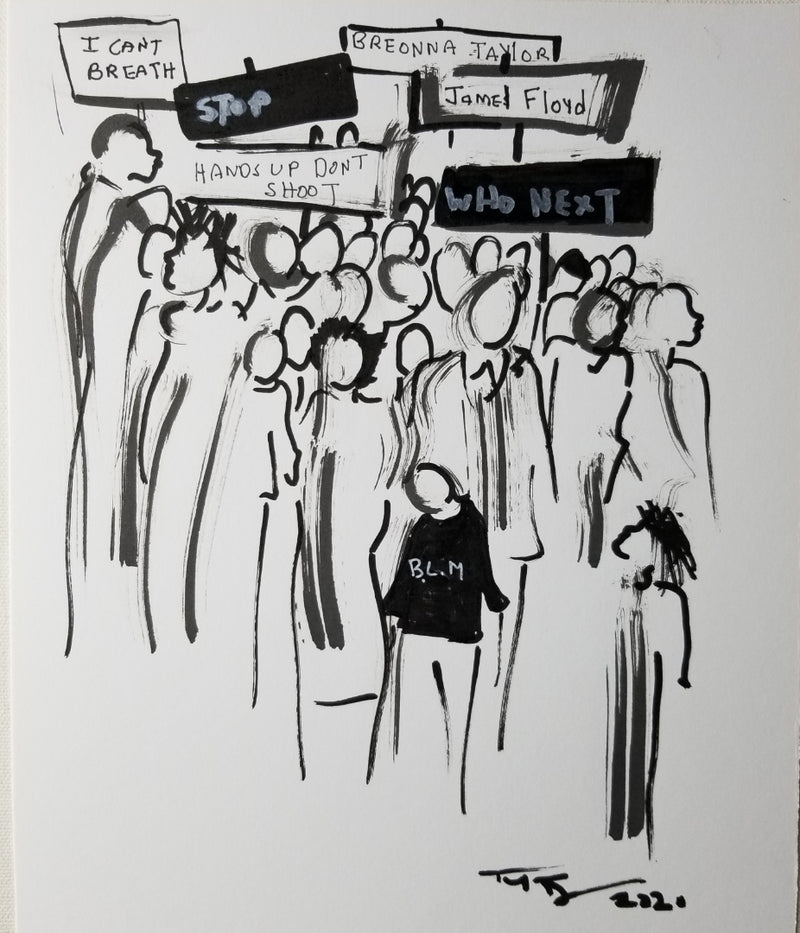 I CANT
BREATH
BREONNA TAYLOR
STOP
JAMEL Floyd
HANDS UP DONT
SHOOT
WHO NEXT
B.L.M
2020